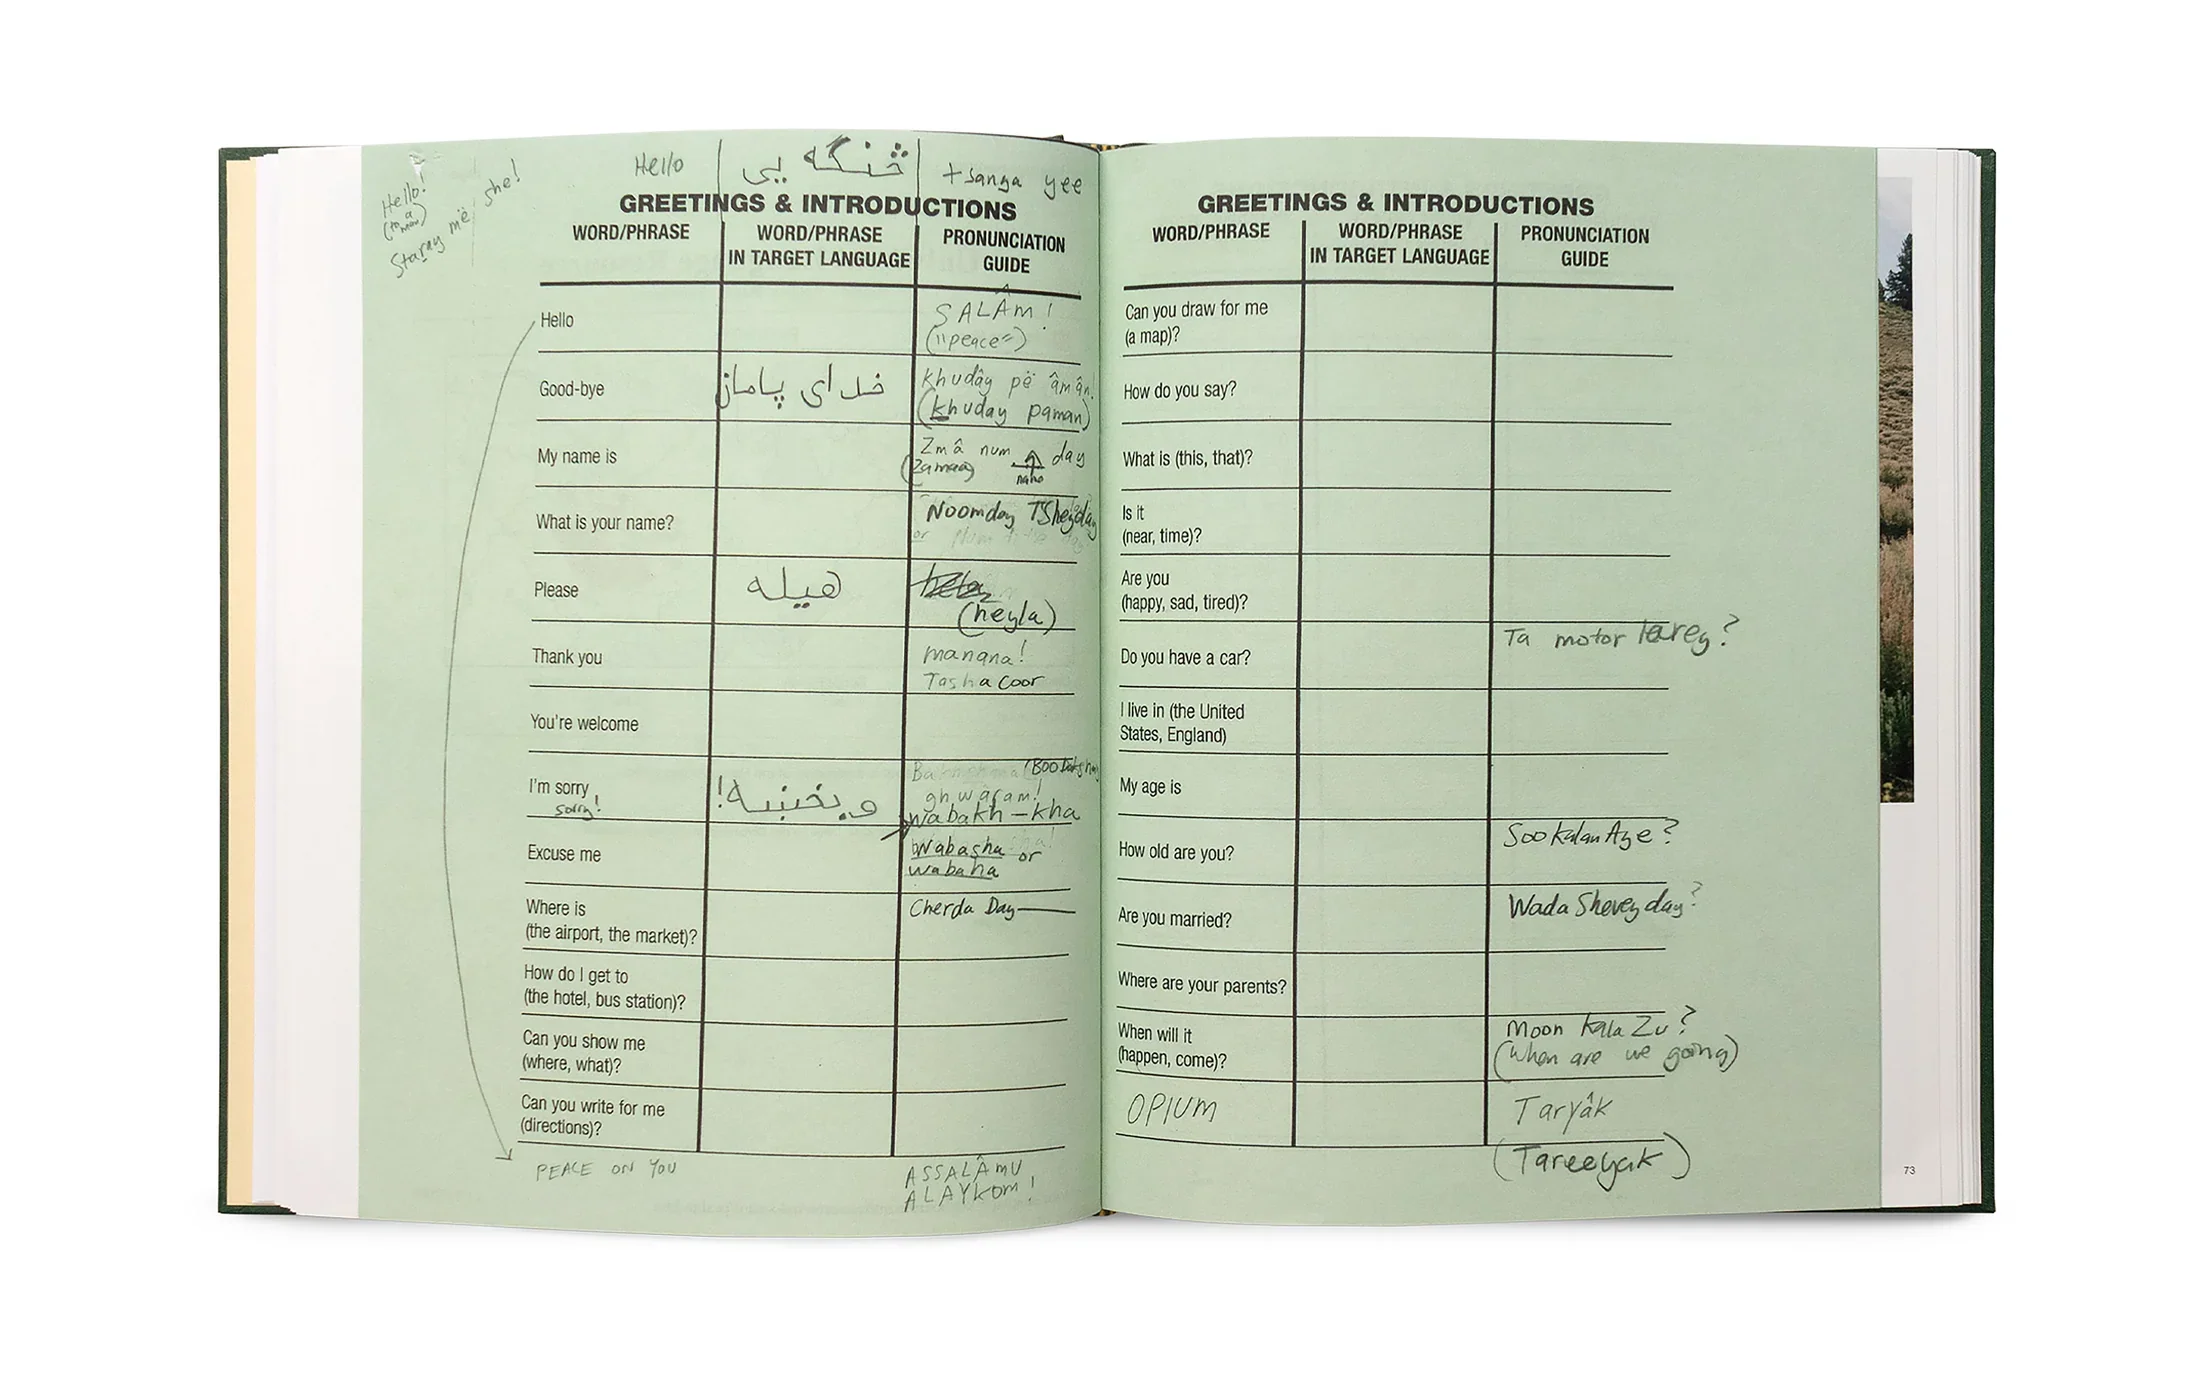 Hello!
(to a man)
Staray më she!
Hello څنګه یی tsanga yee
GREETINGS & INTRODUCTIONS
WORD/PHRASE
WORD/PHRASE
IN TARGET LANGUAGE
PRONUNCIATION
GUIDE
Hello
SALÂM!
("peace")
Good-bye
خدای پامان
khudây pë âmân!
(khuday paman)
My name is
Zmâ num day
(zamaa)
name
What is your name?
Noomday TSheyday
or Num
Please
هیله
(heyla)
Thank you
manana!
Tashacoor
You're welcome
I'm sorry
sorry!
وبخښه!
ghwâram!
wabakh-kha
Excuse me
Wabasha or
wabaha
Where is
(the airport, the market)?
Cherda Day
How do I get to
(the hotel, bus station)?
Can you show me
(where, what)?
Can you write for me
(directions)?
PEACE ON YOU
ASSALÂMU
ALAYKOM!
GREETINGS & INTRODUCTIONS
WORD/PHRASE
WORD/PHRASE
IN TARGET LANGUAGE
PRONUNCIATION
GUIDE
Can you draw for me
(a map)?
How do you say?
What is (this, that)?
Is it
(near, time)?
Are you
(happy, sad, tired)?
Do you have a car?
Ta motor larey?
I live in (the United
States, England)
My age is
How old are you?
Soo Kalan Aye?
Are you married?
Wada Shevey day?
Where are your parents?
When will it
(happen, come)?
Moon Kala Zu?
(when are we going)
OPIUM
Taryâk
(Tareeyak)
73